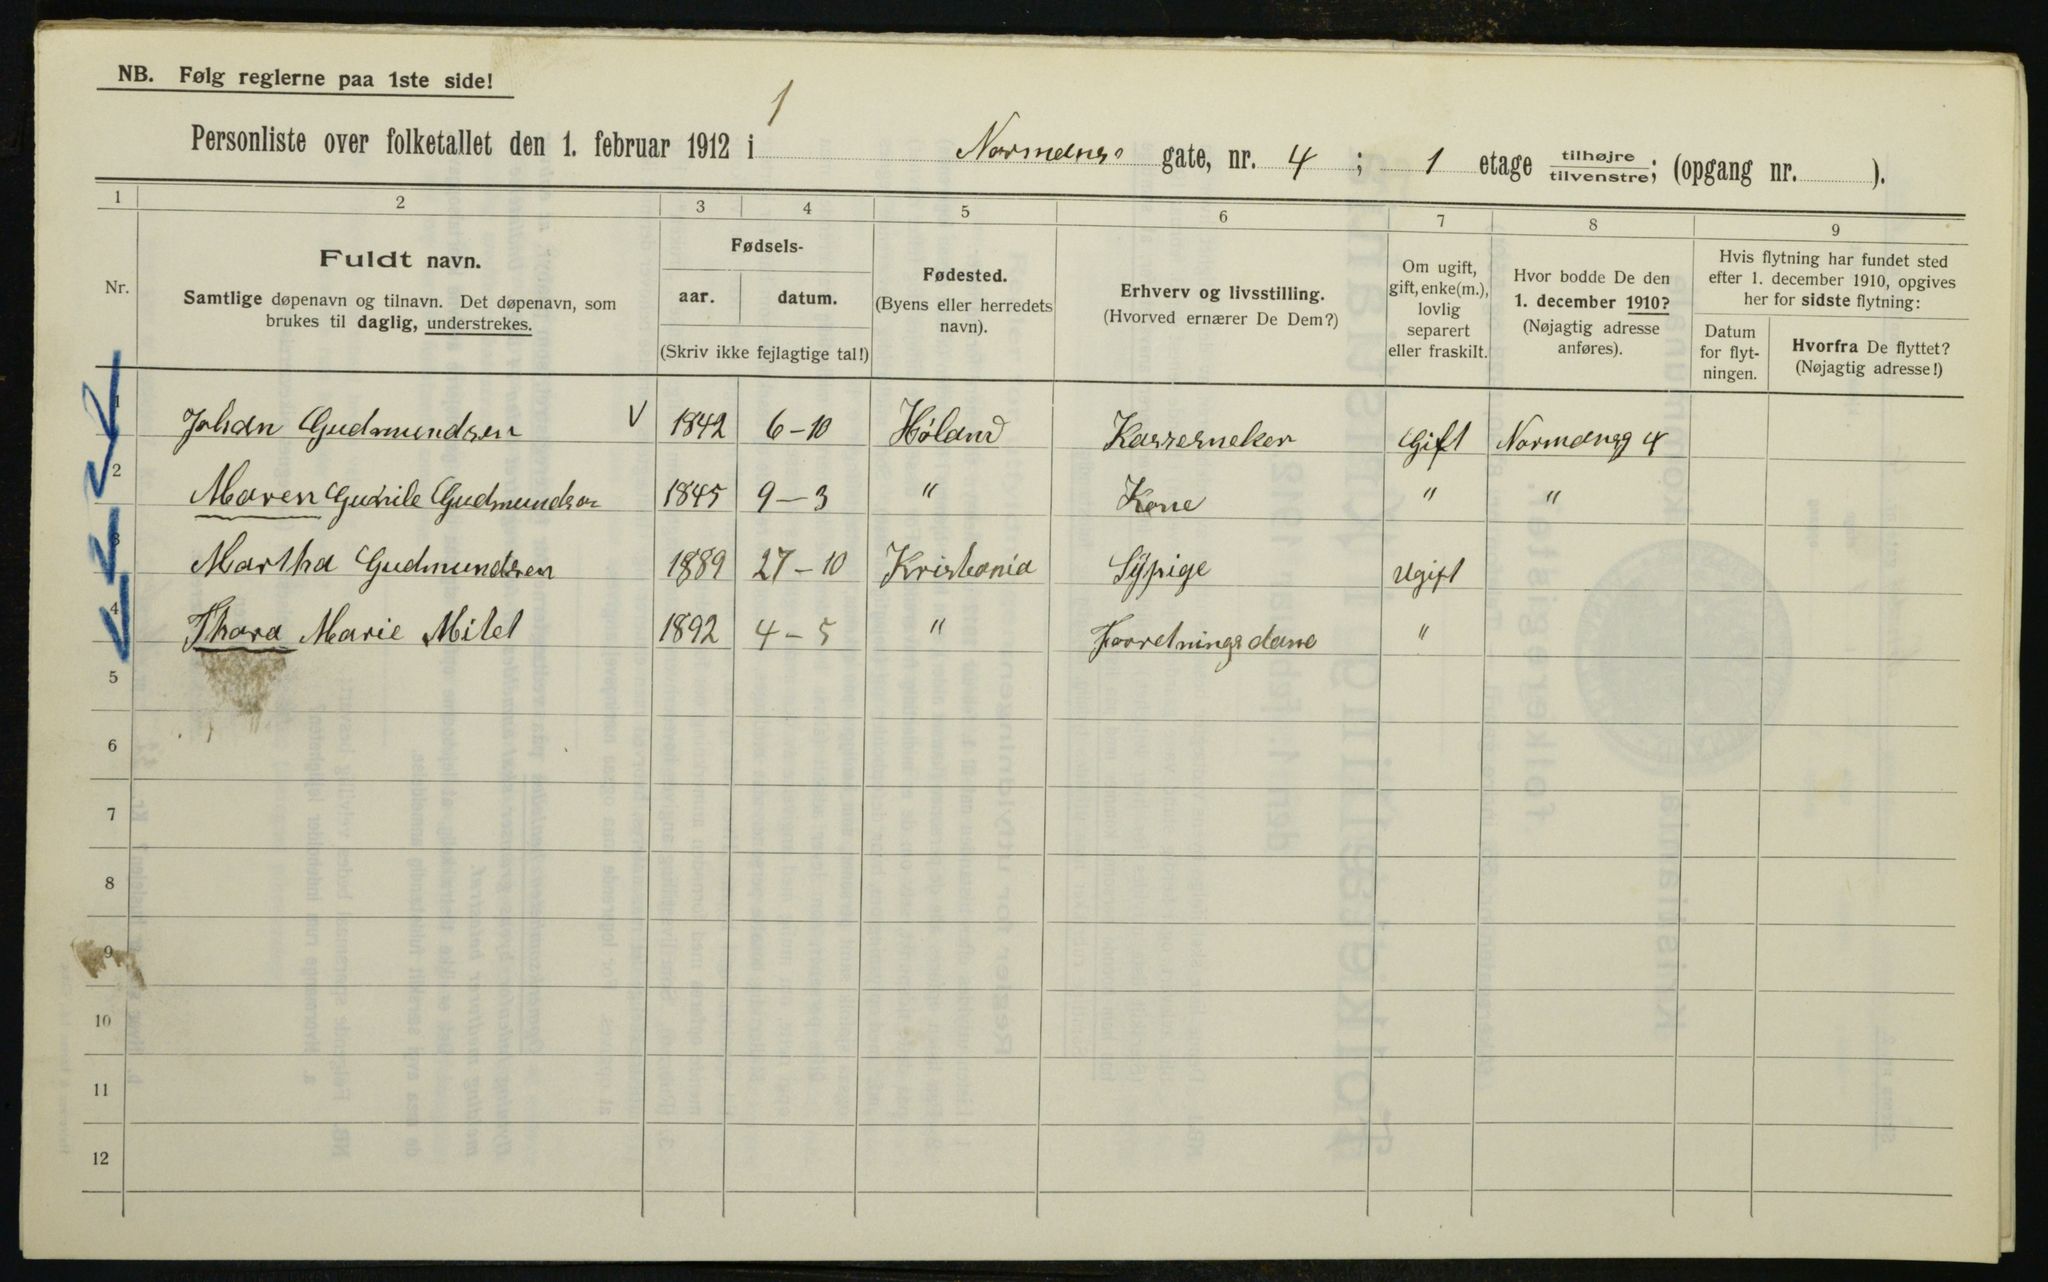 NB. Følg reglerne paa 1ste side!
1
Personliste over folketallet den 1. februar 1912 i Normdns gate, nr. 4 ; 1 etage tilhøjre tilvenstre; (opgang nr. ).
1 2 3 4 5 6 7 8 9
Nr.
Fuldt navn.
Samtlige døpenavn og tilnavn. Det døpenavn, som
brukes til daglig, understrekes.
Fødsels-
aar. datum.
(Skriv ikke fejlagtige tal!)
Fødested.
(Byens eller herredets
navn).
Erhverv og livsstilling.
(Hvorved ernærer De Dem?)
Om ugift,
gift, enke(m.),
lovlig
separert
eller fraskilt.
Hvor bodde De den
1. december 1910?
(Nøjagtig adresse
anføres).
Hvis flytning har fundet sted
efter 1. december 1910, opgives
her for sidste flytning:
Datum
for flyt-
ningen.
Hvorfra De flyttet?
(Nøjagtig adresse!)
1 Johan Gudmundsen V 1842 6-10 Høland Gift Normdnsg 4
2 Maren Gunile Gudmundsen 1845 9-3 " Kone " "
3 Martha Gudmundsen 1889 27-10 Kristania Sypige Ugift
4 Thora Marie Milet 1892 4-5 " Forretningsdame "
5
6
7
8
9
10
11
12